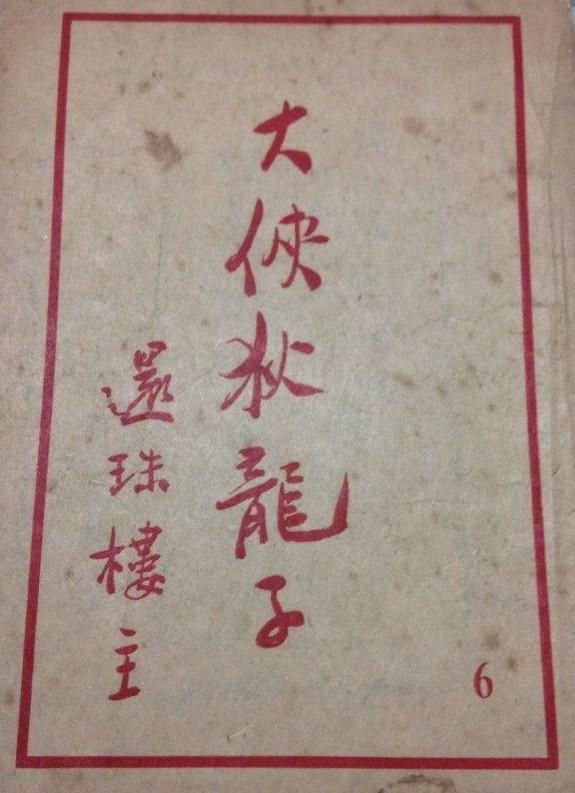 大俠狄龍子
還珠樓主
6